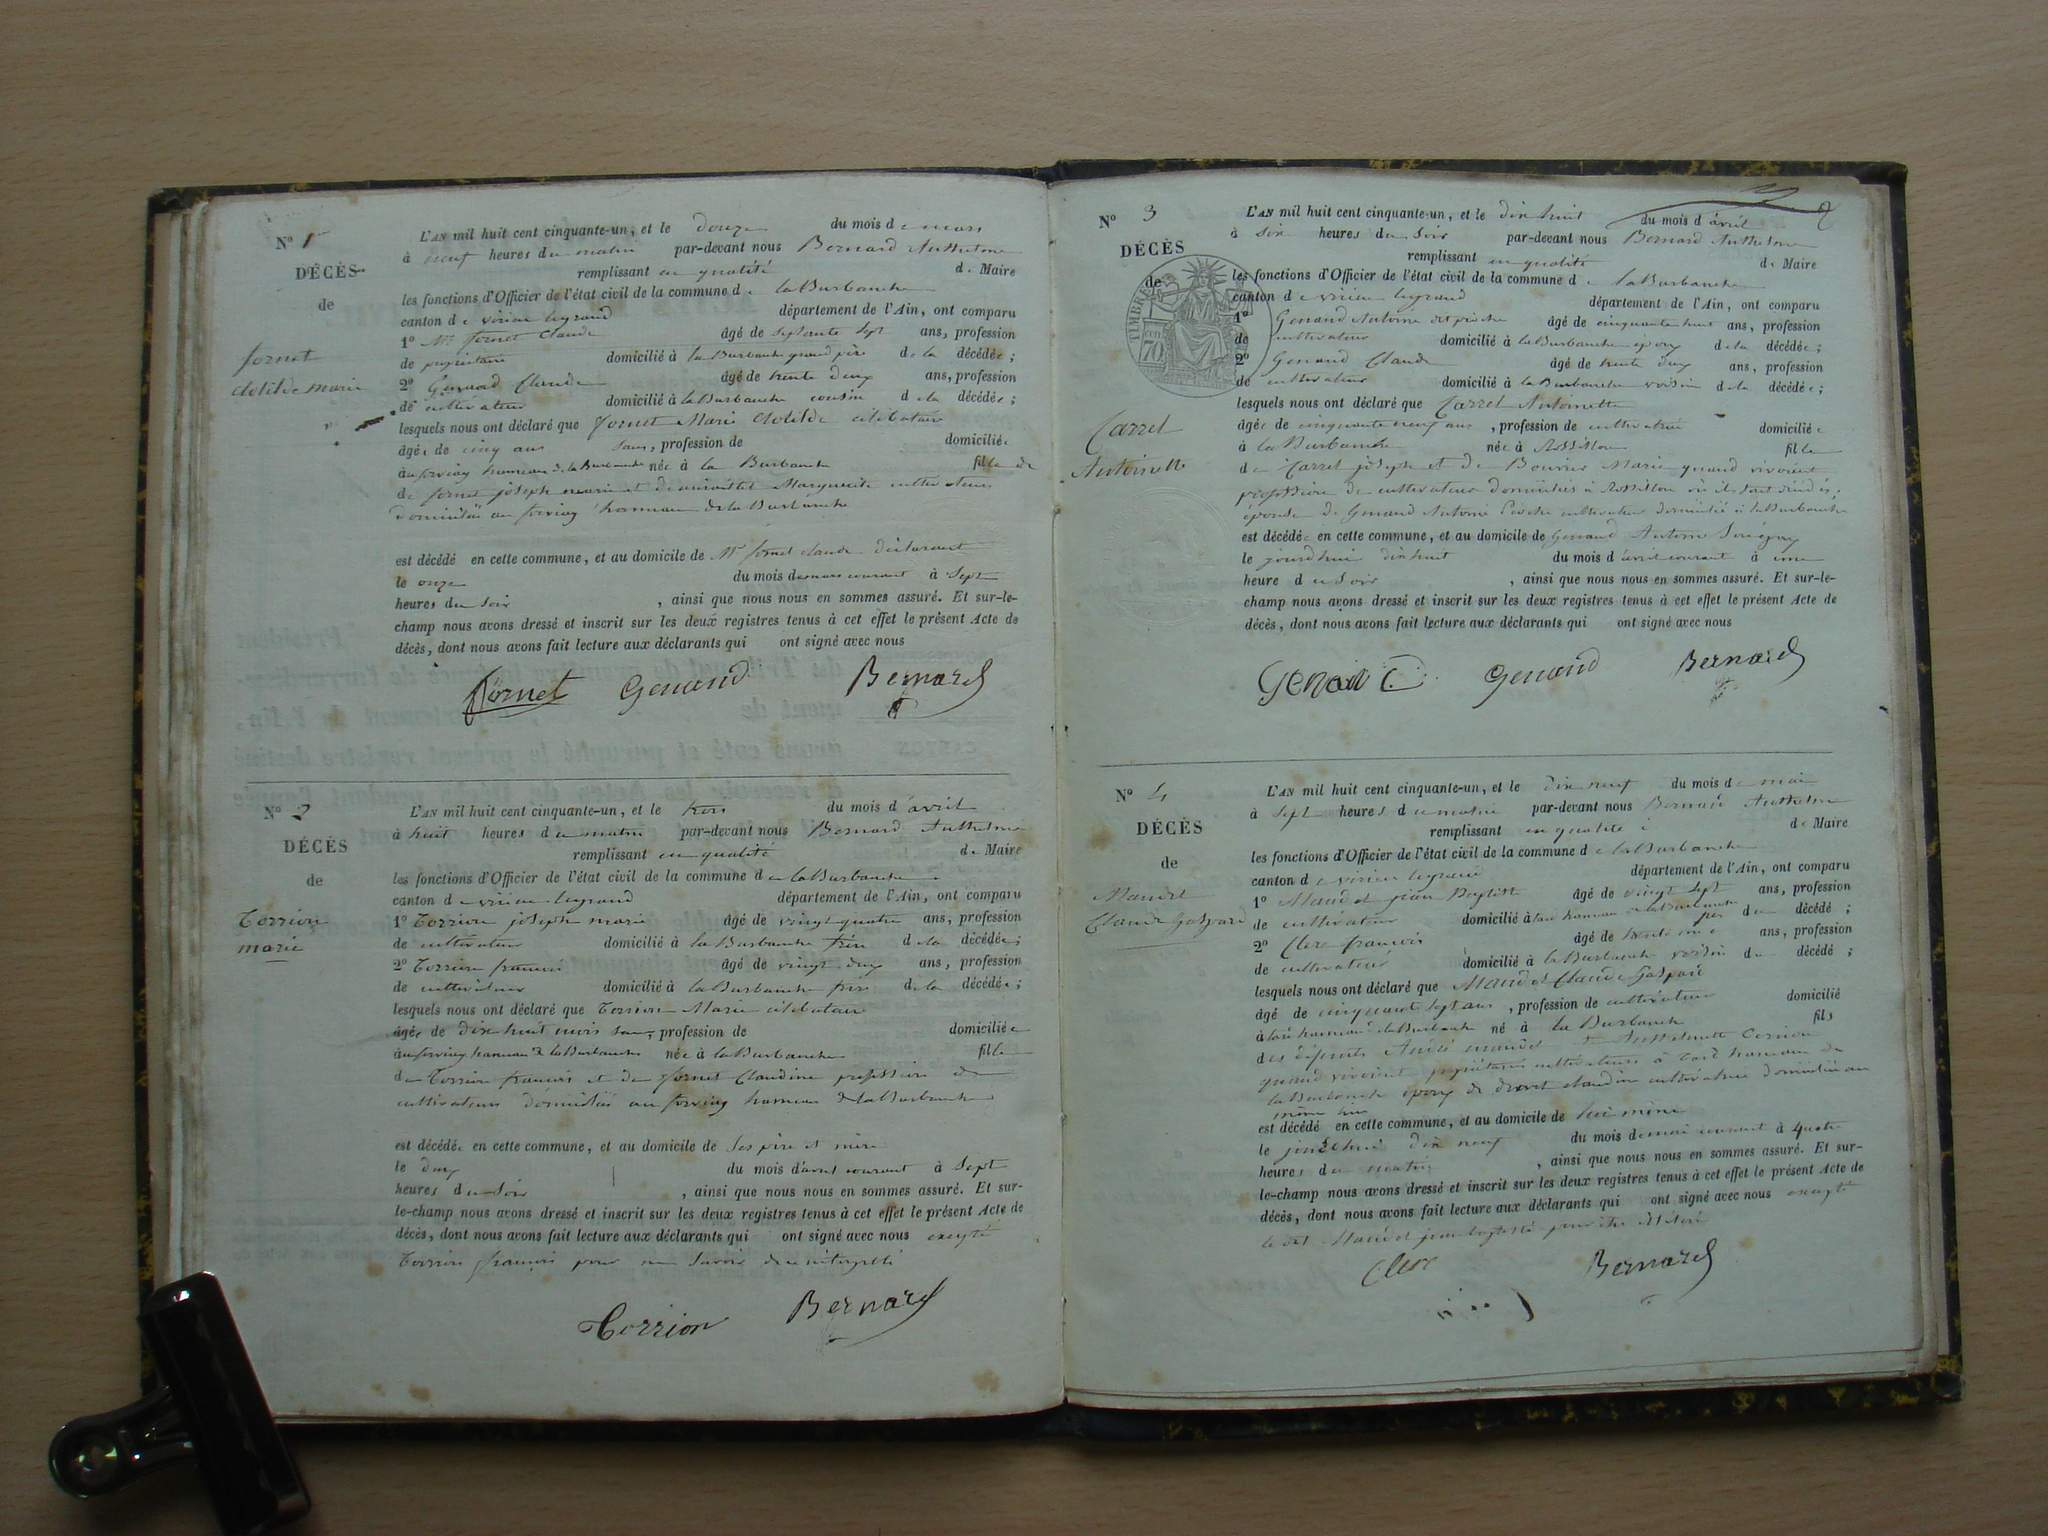 N° 1
DÉCÈS
de
fornet
clotilde marie
L'AN mil huit cent cinquante-un, et le douze du mois de mars
à neuf heures du matin par-devant nous Bernard Anthelme
remplissant en qualité de Maire
les fonctions d'Officier de l'état civil de la commune de la Burbanche
canton de virieu legrand département de l'Ain, ont comparu
1° Mr fornet Claude âgé de septante sept ans, profession
de propriétaire domicilié à la Burbanche grand père de la décédée;
2° Genand Claude âgé de trente deux ans, profession
de cultivateur domicilié à la Burbanche cousin de la décédée;
lesquels nous ont déclaré que fornet Marie Clotilde célibataire
âgée de cinq ans sans, profession de domiciliée
hameau de la Burbanche née à la Burbanche fille de
de fornet joseph marie et de Marguerite cultivateurs
domiciliés au hameau de la Burbanche
est décédé en cette commune, et au domicile de Mr fornet claude déclarant
le onze du mois de mars courant à sept
heures du soir, ainsi que nous nous en sommes assuré. Et sur-le-
champ nous avons dressé et inscrit sur les deux registres tenus à cet effet le présent Acte de
décès, dont nous avons fait lecture aux déclarants qui ont signé avec nous
fornet Genand Bernard
N° 2
DÉCÈS
de
Torrion
marie
L'AN mil huit cent cinquante-un, et le trois du mois d'avril
à huit heures du matin par-devant nous Bernard Anthelme
remplissant en qualité de Maire
les fonctions d'Officier de l'état civil de la commune de la Burbanche
canton de virieu legrand département de l'Ain, ont comparu
1° Torrion joseph marie âgé de vingt quatre ans, profession
de cultivateur domicilié à la Burbanche frère de la décédée;
2° Torrion francois âgé de vingt deux ans, profession
de cultivateur domicilié à la Burbanche frère de la décédée;
lesquels nous ont déclaré que Torrion Marie célibataire
âgée de dix huit mois sans, profession de domiciliée
hameau de la Burbanche née à la Burbanche fille
de Torrion francois et de fornet Claudine profession de
cultivateurs domiciliés au hameau de la Burbanche
est décédée en cette commune, et au domicile de ses père et mère
le deux du mois d'avril courant à sept
heures du soir, ainsi que nous nous en sommes assuré. Et sur-
le-champ nous avons dressé et inscrit sur les deux registres tenus à cet effet le présent Acte de
décès, dont nous avons fait lecture aux déclarants qui ont signé avec nous excepté
Torrion francois pour ne savoir
Torrion Bernard
2
N° 3
DÉCÈS
de
TIMBRE
70
Carrel
Antoinette
L'AN mil huit cent cinquante-un, et le dix huit du mois d'avril
à six heures du soir par-devant nous Bernard Anthelme
remplissant en qualité de Maire
les fonctions d'Officier de l'état civil de la commune de la Burbanche
canton de virieu legrand département de l'Ain, ont comparu
1° Genand Antoine âgé de cinquante huit ans, profession
de cultivateur domicilié à la Burbanche époux de la décédée;
2° Genand Claude âgé de trente deux ans, profession
de cultivateur domicilié à la Burbanche voisin de la décédée;
lesquels nous ont déclaré que Carrel Antoinette
âgée de cinquante neuf ans, profession de cultivatrice domiciliée
à la Burbanche née à Rossillon fille
de Carrel joseph et de Bouvier Marie quand vivoient
profession de cultivateurs domiciliés à Rossillon où ils sont décédés,
épouse de Genand Antoine cultivateur domicilié à la Burbanche
est décédée en cette commune, et au domicile de Genand Antoine
le jourdhui dix huit du mois d'avril courant à une
heure du soir, ainsi que nous nous en sommes assuré. Et sur-le-
champ nous avons dressé et inscrit sur les deux registres tenus à cet effet le présent Acte de
décès, dont nous avons fait lecture aux déclarants qui ont signé avec nous
Genand Bernard
N° 4
DÉCÈS
de
Maudet
Claude Gaspard
L'AN mil huit cent cinquante-un, et le dix neuf du mois de mai
à sept heures du matin par-devant nous Bernard Anthelme
remplissant en qualité de Maire
les fonctions d'Officier de l'état civil de la commune de la Burbanche
canton de virieu legrand département de l'Ain, ont comparu
1° Maudet jean Baptiste âgé de vingt sept ans, profession
de cultivateur domicilié à hameau de la Burbanche du décédé;
2° Clerc francois âgé de ans, profession
de cultivateur domicilié à la Burbanche voisin du décédé;
lesquels nous ont déclaré que Maudet Claude Gaspard
âgé de cinquante sept ans, profession de cultivateur domicilié
à hameau de la Burbanche né à la Burbanche fils
des défunts André maudet et Anthelmette
quand vivoient propriétaires cultivateurs à hameau de
la Burbanche époux de cultivatrice domiciliée au
même lieu
est décédé en cette commune, et au domicile de lui même
le dix neuf du mois de mai courant à quatre
heures du matin, ainsi que nous nous en sommes assuré. Et sur-
le-champ nous avons dressé et inscrit sur les deux registres tenus à cet effet le présent Acte de
décès, dont nous avons fait lecture aux déclarants qui ont signé avec nous excepté
le dit Maudet jean baptiste pour être illitéré
Clerc Bernard